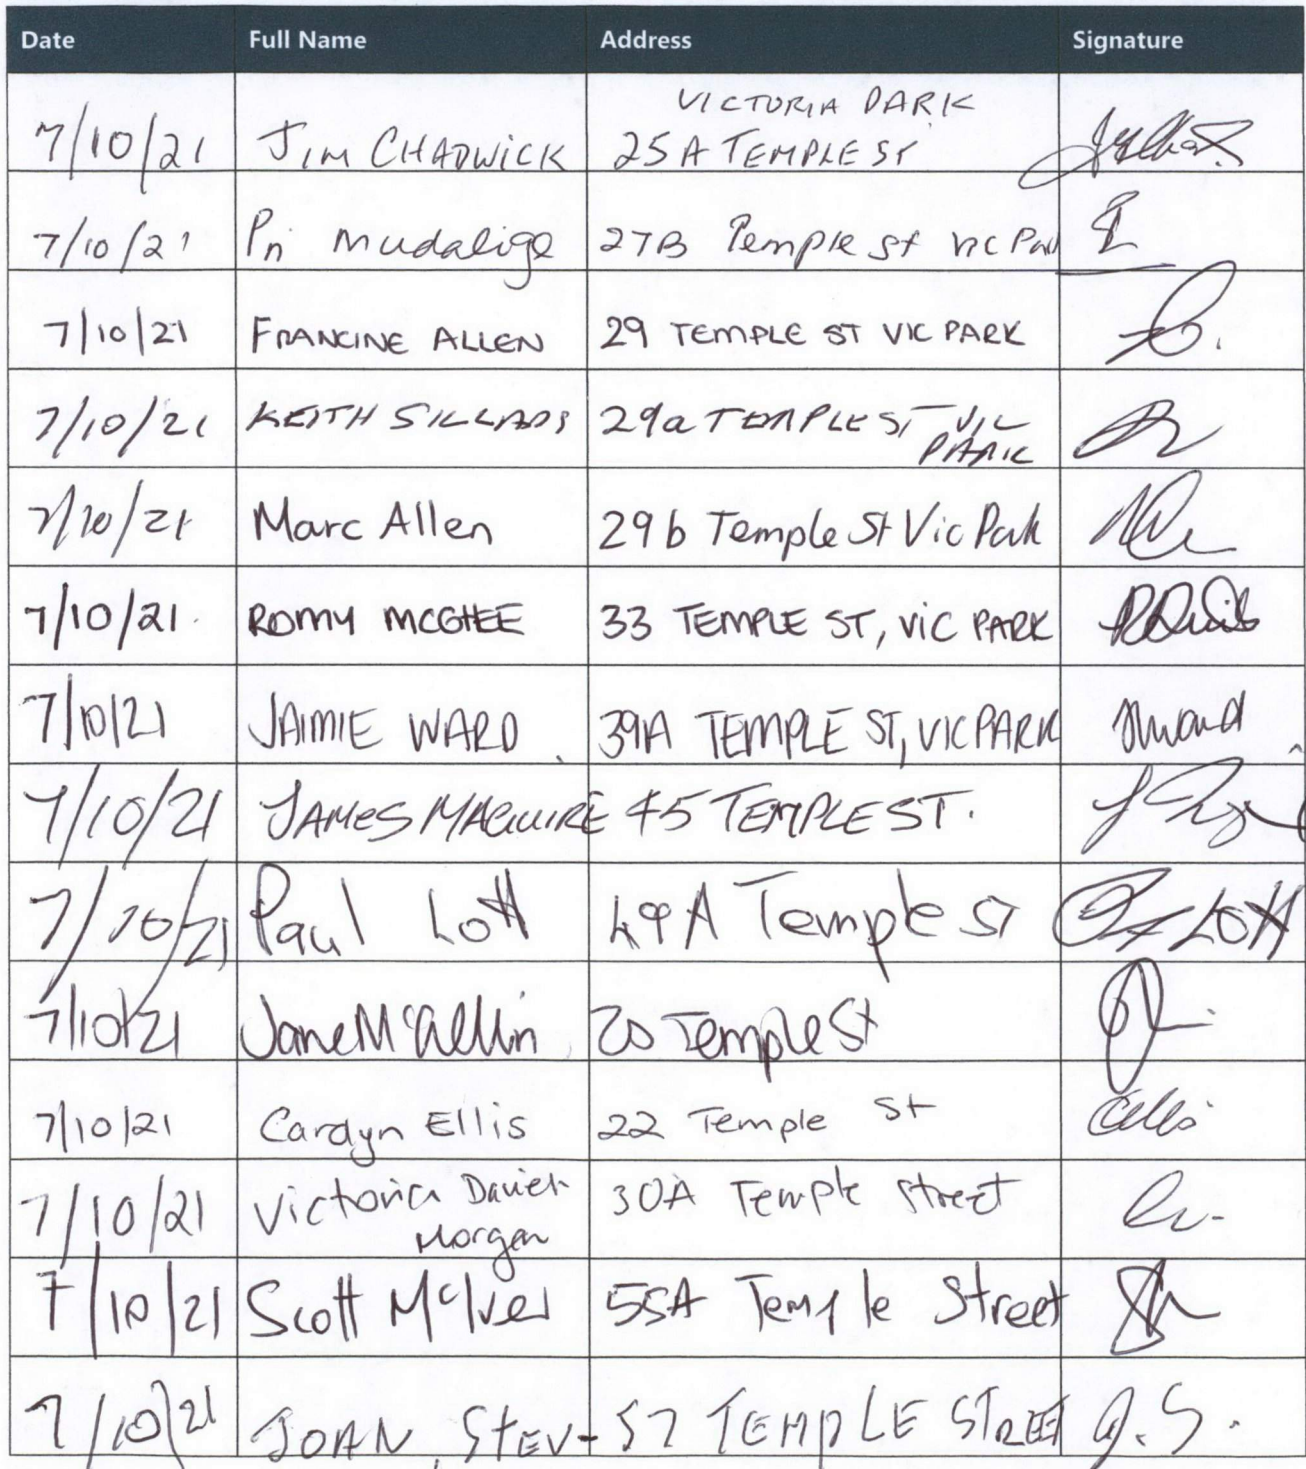 Date Full Name Address Signature
VICTORIA PARK
7/10/21 JIM CHADWICK 25A TEMPLE ST
7/10/21 Pn Mudalige 27B Temple St Vic Park
7/10/21 FRANCINE ALLEN 29 TEMPLE ST VIC PARK
7/10/21 KEITH 29a TEMPLE ST VIC
PARK
7/10/21 Marc Allen 29b Temple St Vic Park
7/10/21. ROMY MCGHEE 33 TEMPLE ST, VIC PARK
7/10/21 JAIMIE WARD 39A TEMPLE ST, VIC PARK
7/10/21 JAMES MAGUIRE 45 TEMPLE ST.
7/10/21 Paul Lott 49A Temple ST LOTT
7/10/21 Jane 20 Temple St
7/10/21 Carolyn Ellis 22 Temple St Ellis
7/10/21 Victoria 30A Temple Street
Morgan
7/10/21 Scott McIver 55A Temple Street
7/10/21 JOAN STEV- 57 TEMPLE STREET J.S.